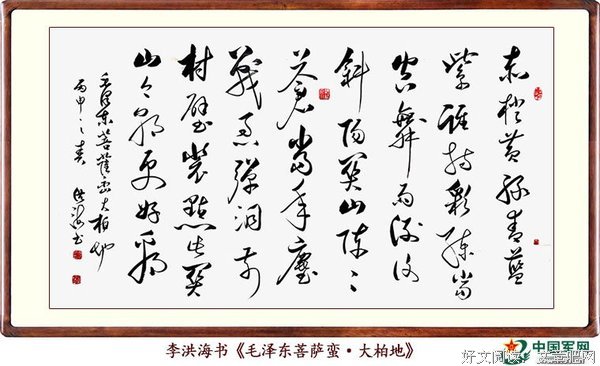 赤橙黄绿青蓝
紫谁持彩练当
空舞雨后复
斜阳关山阵〻
苍当年鏖
战急弹洞前
村壁装点此关
山今朝更好看
毛泽东菩萨蛮大柏地
丙申之春 洪海书
李洪海书《毛泽东菩萨蛮·大柏地》
中国军网
好文阅读